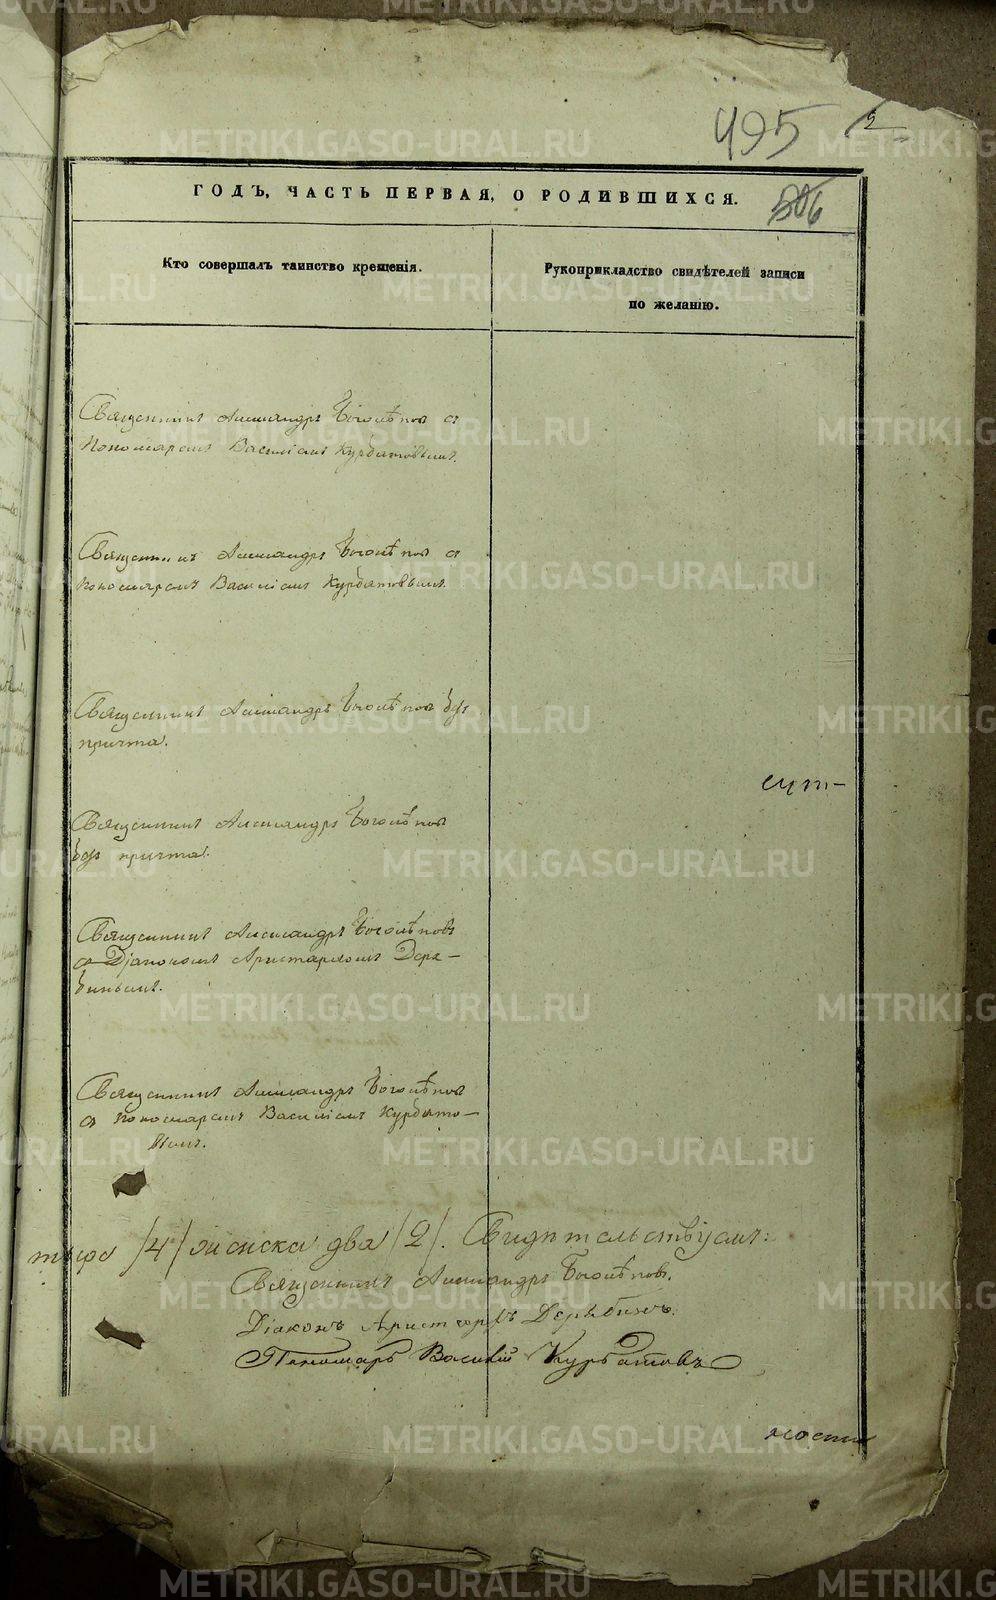 495
2
506
ГОДЪ, ЧАСТЬ ПЕРВАЯ, О РОДИВШИХСЯ.
Кто совершалъ таинство крещенія.
Рукоприкладство свидѣтелей записи
по желанію.
Священникъ Александръ Боголѣповъ съ
Пономаремъ Василіемъ Курбатовымъ.
Священникъ Александръ Боголѣповъ съ
Пономаремъ Василіемъ Курбатовымъ.
Священникъ Александръ Боголѣповъ безъ
причта.
Священникъ Александръ Боголѣповъ
безъ причта.
Священникъ Александръ Боголѣповъ
съ Діакономъ Аристархомъ Деря–
бинымъ.
Священникъ Александръ Боголѣповъ
съ Пономаремъ Василіемъ Курбато–
вымъ.
/4/ женска два /2/. Свидѣтельствуемъ:
Священникъ Александръ Боголѣповъ.
Діаконъ Аристархъ Дерябинъ.
Пономарь Василій Курбатовъ
METRIKI.GASO-URAL.RU